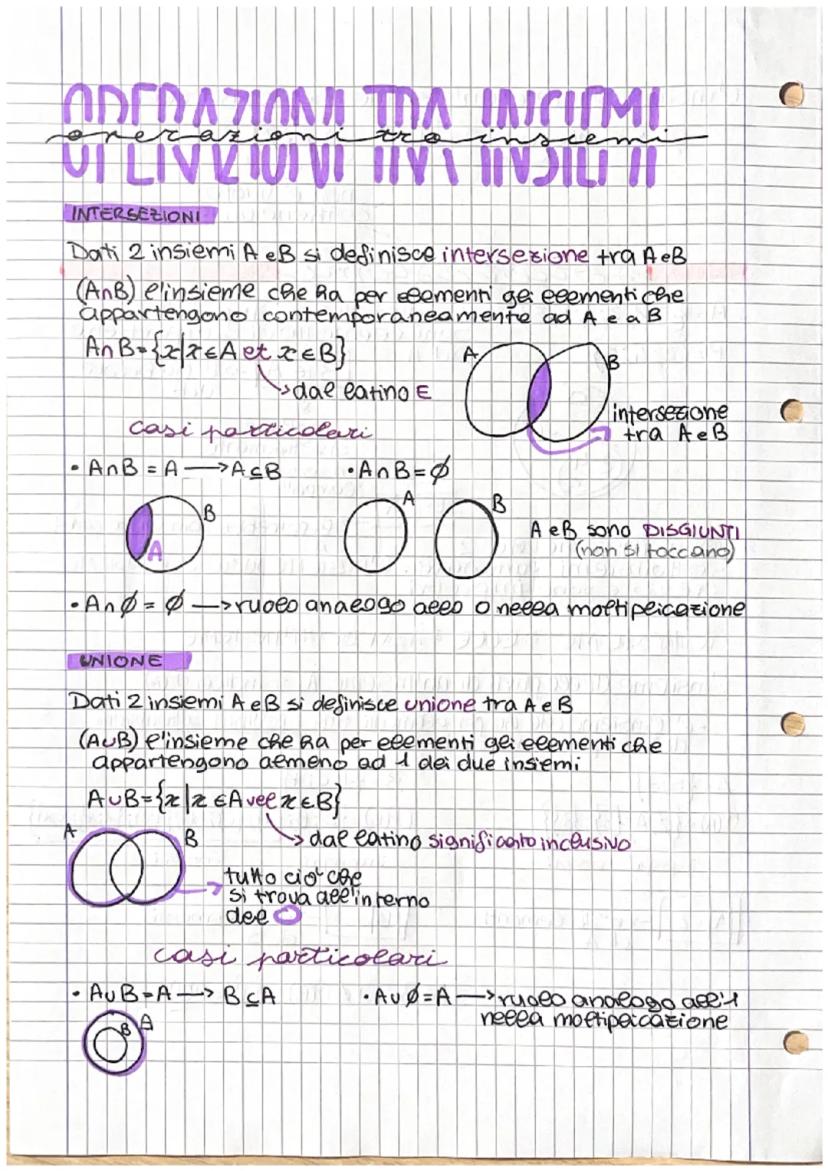 OPERAZIONI TRA INSIEMI
operazioni tra insiemi
INTERSEZIONI
Dati 2 insiemi A e B si definisce intersezione tra A e B
(A∩B) l'insieme che ha per elementi gli elementi che
appartengono contemporaneamente ad A e a B
A∩B={x|x∈A et x∈B}
dal latino E
A B
intersezione
tra A e B
casi particolari
• A∩B = A → A⊆B •A∩B=∅
B
A
A B
A e B sono DISGIUNTI
(non si toccano)
•A∩∅ = ∅ → ruolo analogo allo 0 nella moltiplicazione
UNIONE
Dati 2 insiemi A e B si definisce unione tra A e B
(A∪B) l'insieme che ha per elementi gli elementi che
appartengono almeno ad 1 dei due insiemi
A∪B={x|x∈A vel x∈B}
dal latino significato inclusivo
A B
tutto ciò che
si trova all'interno
del
casi particolari
• A∪B=A → B⊆A •A∪∅=A → ruolo analogo all'1
nella moltiplicazione
B A